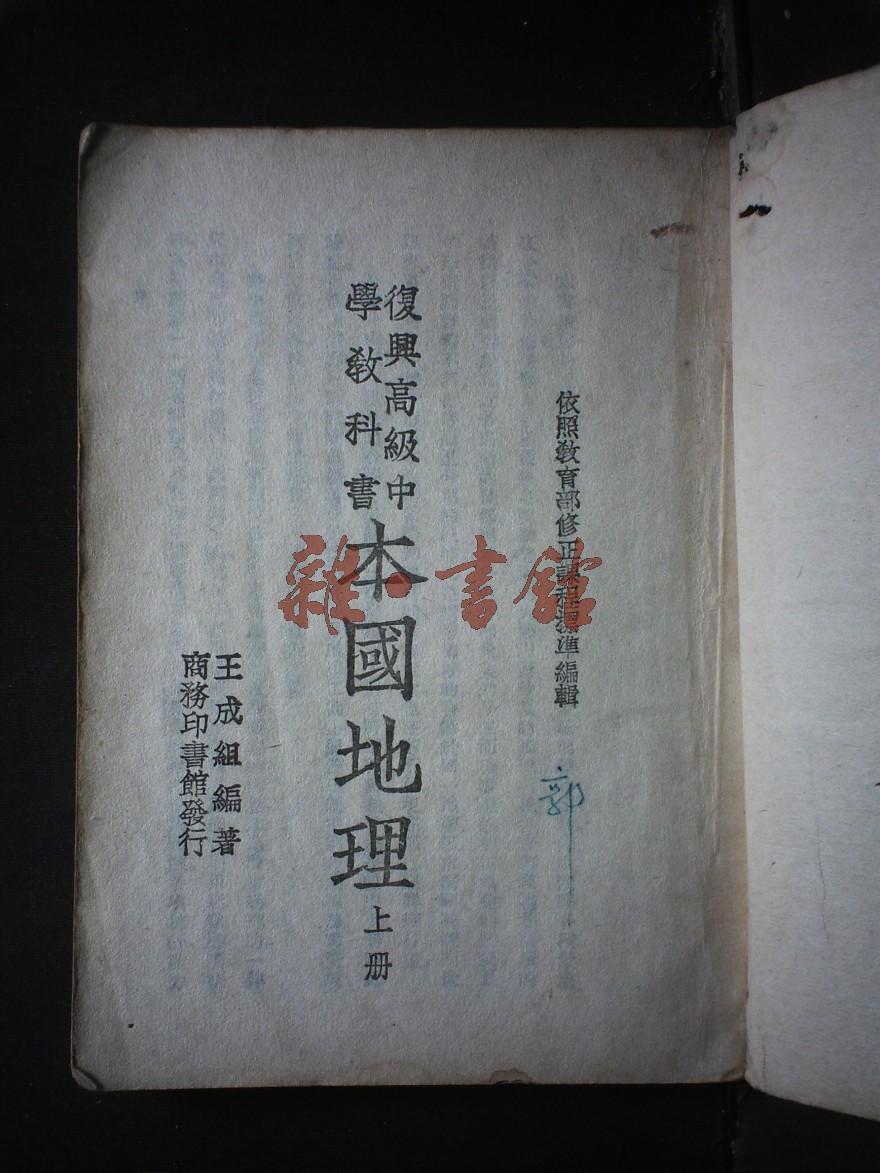 依照教育部修正課程標準編輯
郭
復興高級中
學教科書
本國地理
上册
王成組編著
商務印書館發行
雜·書館